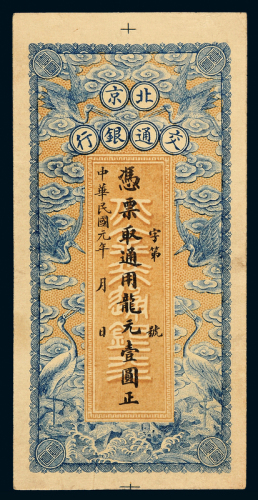 北京
交通銀行
字第 號
憑票取通用龍元壹圓正
中華民國元年 月 日